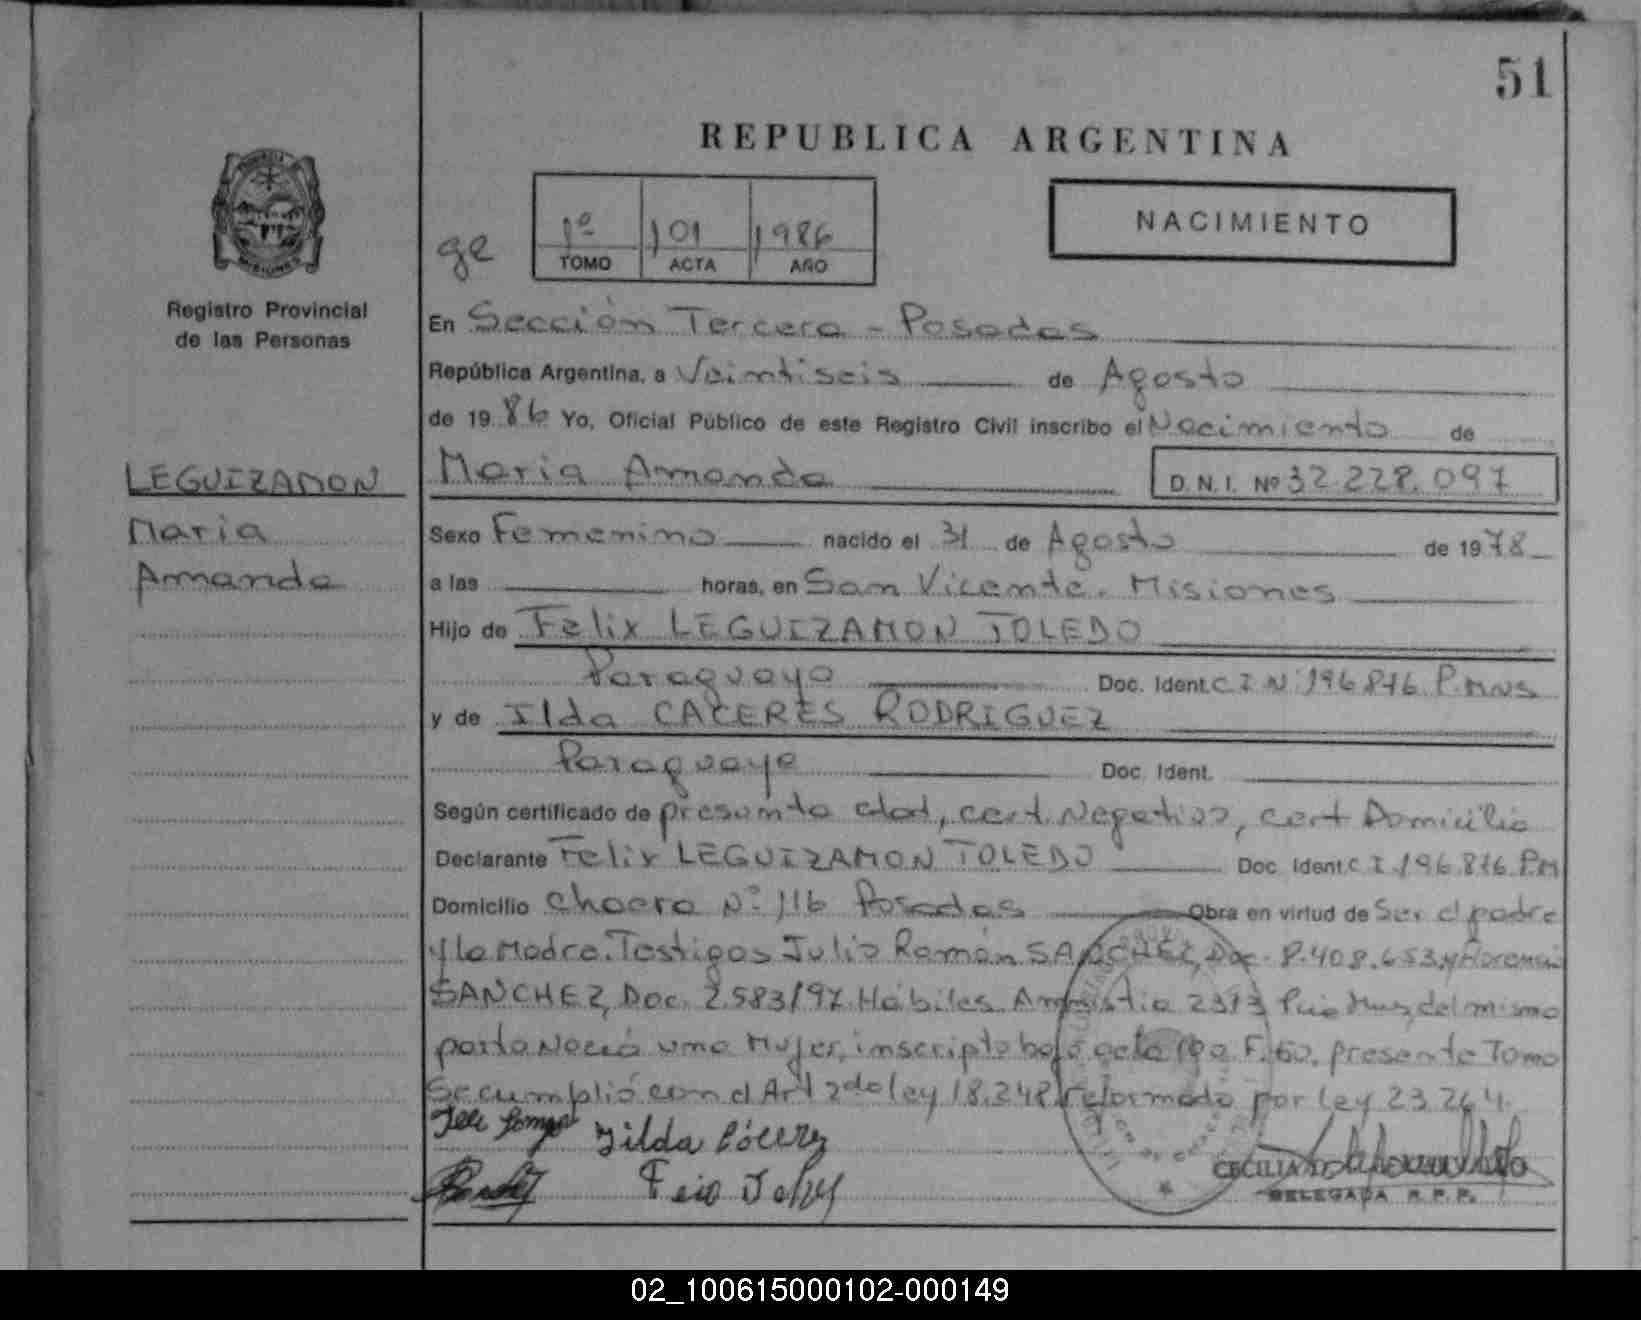 51
REPUBLICA ARGENTINA
NACIMIENTO
ge
1º 101 1986
TOMO ACTA AÑO
Registro Provincial
de las Personas
En Sección Tercera - Posadas
República Argentina, a Veintiseis de Agosto
de 1986 Yo, Oficial Público de este Registro Civil inscribo el Nacimiento de
LEGUIZAMON
Maria
Amanda
Maria Amanda D.N.I. Nº 32.228.097
Sexo Femenino nacido el 31 de Agosto de 1978
a las horas, en San Vicente. Misiones
Hijo de Felix LEGUIZAMON TOLEDO
Paraguayo Doc. Ident. C I N 196.846 P. Mns
y de Ilda CACERES RODRIGUEZ
Paraguaya Doc. Ident.
Según certificado de presunta edad, cert. Negativo, cert Domicilio
Declarante Felix LEGUIZAMON TOLEDO Doc. Ident. C I. 196.846 P.M
Domicilio Chacra Nº 116 Posadas Obra en virtud de Ser el padre
y la Madre. Testigos Julio Ramón SANCHEZ, Doc. 8.408.653 y
SANCHEZ, Doc. 2.583197 Hábiles. Amnistia 2313 del mismo
parto Nació una Mujer, inscripta bajo acta 100 F. 50. presente Tomo
Se cumplió con el Art 2 de ley 18.248 reformado por Ley 23.264.
Ilda
CECILIA
DELEGADA R. P. P.
02_100615000102-000149